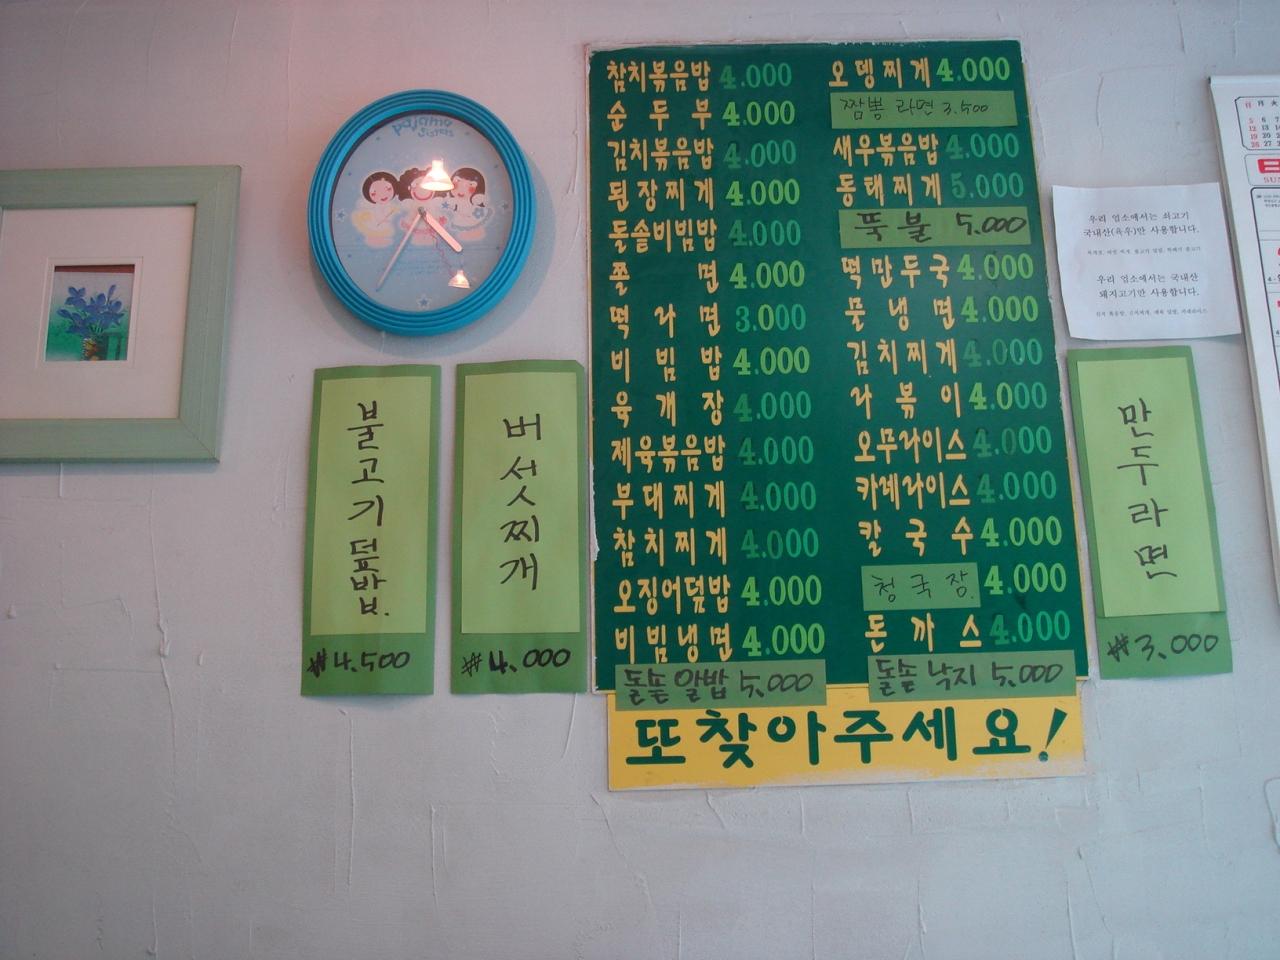 pajama
sisters
불고기덮밥.
₩4.500
버섯찌개
₩4.000
참치볶음밥 4.000
순두부 4.000
김치볶음밥 4.000
된장찌게 4.000
돌솥비빔밥 4.000
쫄면 4.000
떡라면 3.000
비빔밥 4.000
육개장 4.000
제육볶음밥 4.000
부대찌게 4.000
참치찌게 4.000
오징어덮밥 4.000
비빔냉면 4.000
돌솥알밥 5.000
오뎅찌게 4.000
짬뽕라면 3.500
새우볶음밥 4.000
동태찌게 5.000
뚝불 5.000
떡만두국 4.000
물냉면 4.000
김치찌게 4.000
라볶이 4.000
오무라이스 4.000
카레라이스 4.000
칼국수 4.000
청국장 4.000
돈까스 4.000
돌솥낙지 5.000
또찾아주세요!
우리 업소에서는 쇠고기
국내산(육우)만 사용합니다.
우리 업소에서는 국내산
돼지고기만 사용합니다.
만두라면
₩3.000
日 月 火
5 6 7
12 13
19 20
26 27
日
SUN